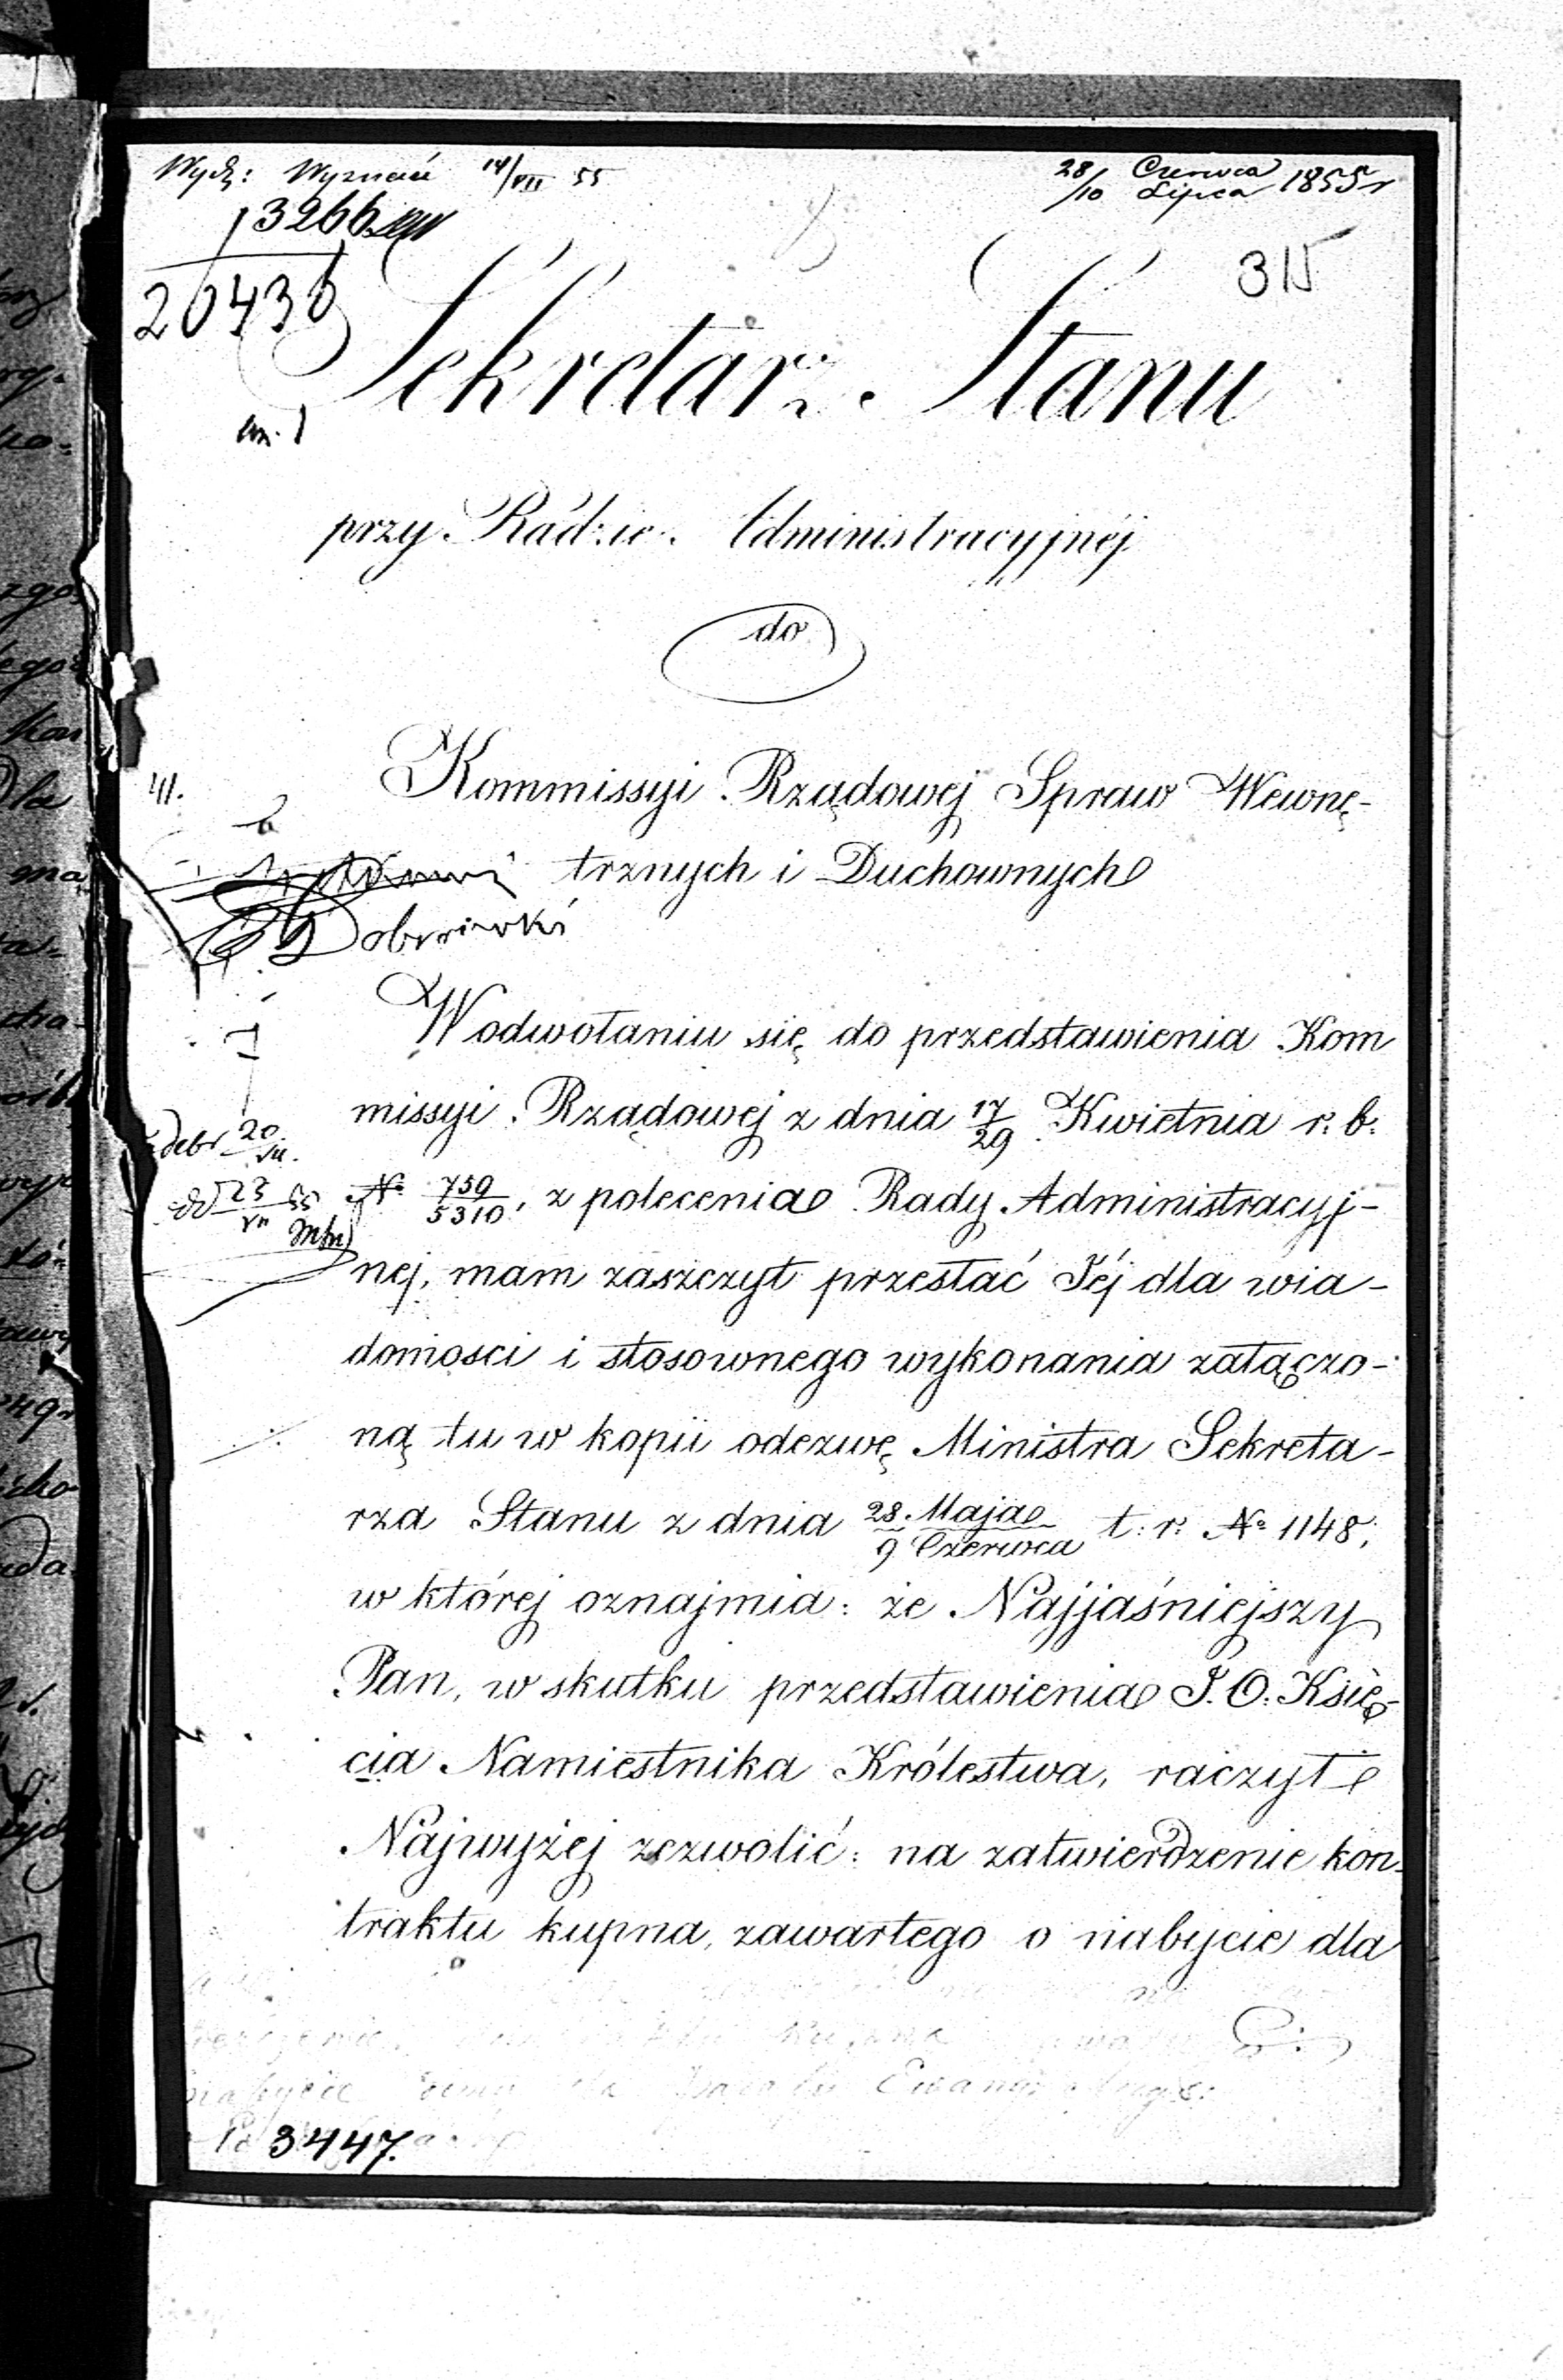 Wydz: Wyznań 14/VII 55
28/10 Czerwca Lipca 1855 r
13266
20436
315
Sekretarz Stanu
przy Radzie Administracyjnéj
do
Kommissyi Rządowej Spraw Wewnę-
trznych i Duchownych
W odwołaniu się do przedstawienia Kom
missyi Rządowej z dnia 17/29 Kwietnia r. b.
№ 759/5310, z polecenia Rady Administracyj-
nej, mam zaszczyt przesłać Jéj dla wia-
domosci i stosownego wykonania załączo-
ną tu w kopii odezwę Ministra Sekreta-
rza Stanu z dnia 28 Maja/9 Czerwca t. r. № 1148,
w której oznajmia: że Najjaśniejszy
Pan, w skutku przedstawienia J. O. Księ-
cia Namiestnika Królestwa, raczył
Najwyżej zezwolić: na zatwierdzenie kon-
traktu kupna, zawartego o nabycie dla
3447.